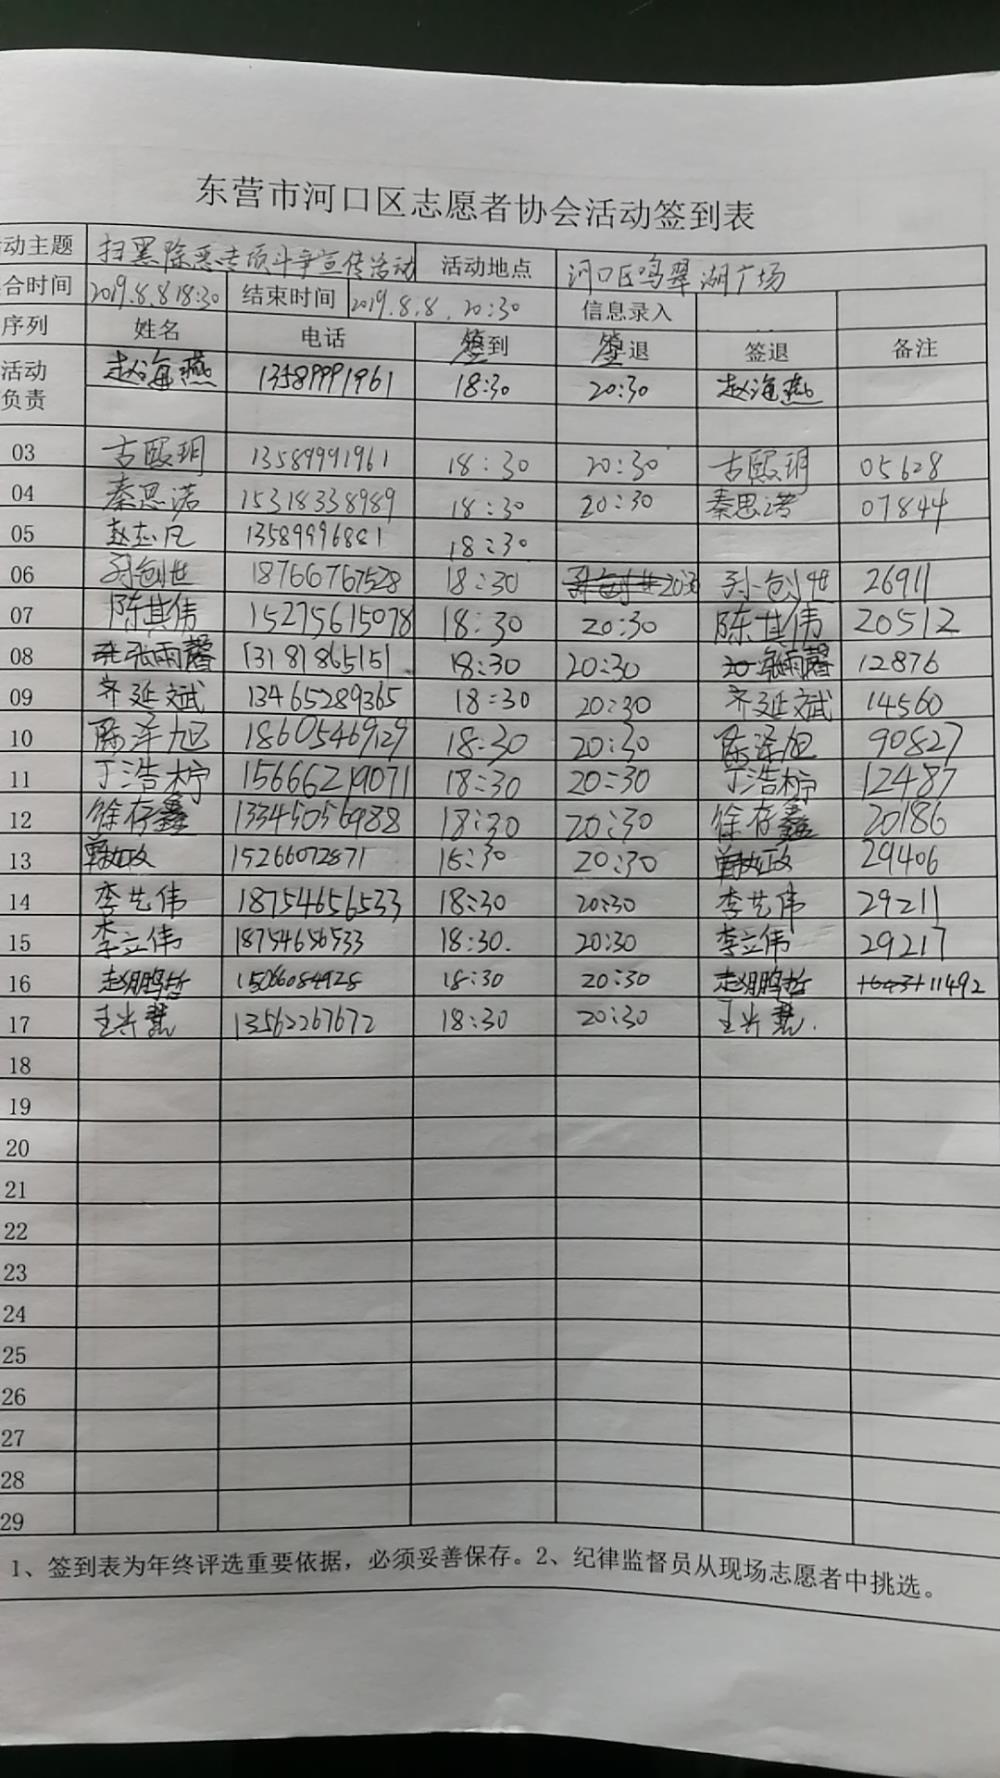 东营市河口区志愿者协会活动签到表
动主题 扫黑除恶专项斗争宣传活动 活动地点 河口区鸣翠湖广场
合时间 2019.8.8 18:30 结束时间 2019.8.8. 20:30 信息录入
序列 姓名 电话 签到 签退 签退 备注
活动负责 赵海燕 13589991961 18:30 20:30 赵海燕
03 古熙玥 13589991961 18:30 20:30 古熙玥 05628
04 秦思诺 15318338989 18:30 20:30 秦思诺 07844
05 赵志凡 13589996881 18:30
06 孙创世 18766767528 18:30 20:30 孙创世 26911
07 陈其伟 15275615078 18:30 20:30 陈其伟 20512
08 张雨馨 13181865151 18:30 20:30 张雨馨 12876
09 齐延斌 13465289365 18:30 20:30 齐延斌 14560
10 陈泽旭 18605469129 18:30 20:30 陈泽旭 90827
11 丁浩柠 15666219071 18:30 20:30 丁浩柠 12487
12 徐存鑫 13345056988 18:30 20:30 徐存鑫 20186
13 15266072871 18:30 20:30 29406
14 李艺伟 18754656533 18:30 20:30 李艺伟 29211
15 李立伟 18754656533 18:30. 20:30 李立伟 29217
16 赵鹏哲 15066084928 18:30 20:30 赵鹏哲 11492
17 王兴慧 13562267672 18:30 20:30 王兴慧.
18
19
20
21
22
23
24
25
26
27
28
29
1、签到表为年终评选重要依据，必须妥善保存。2、纪律监督员从现场志愿者中挑选。